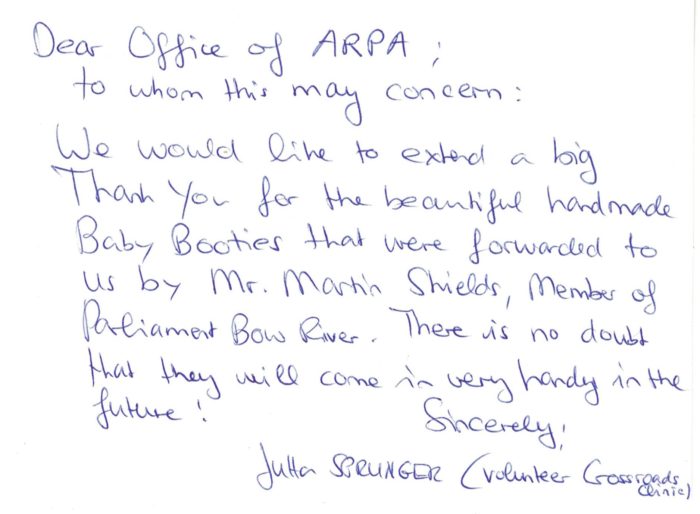 Dear Office of ARPA ;
to whom this may concern :
We would like to extend a big
Thank You for the beautiful handmade
Baby Booties that were forwarded to
us by Mr. Martin Shields, Member of
Parliament Bow River. There is no doubt
that they will come in very handy in the
future !
Sincerely,
Jutta SPRUNGER (volunteer Crossroads
Clinic)